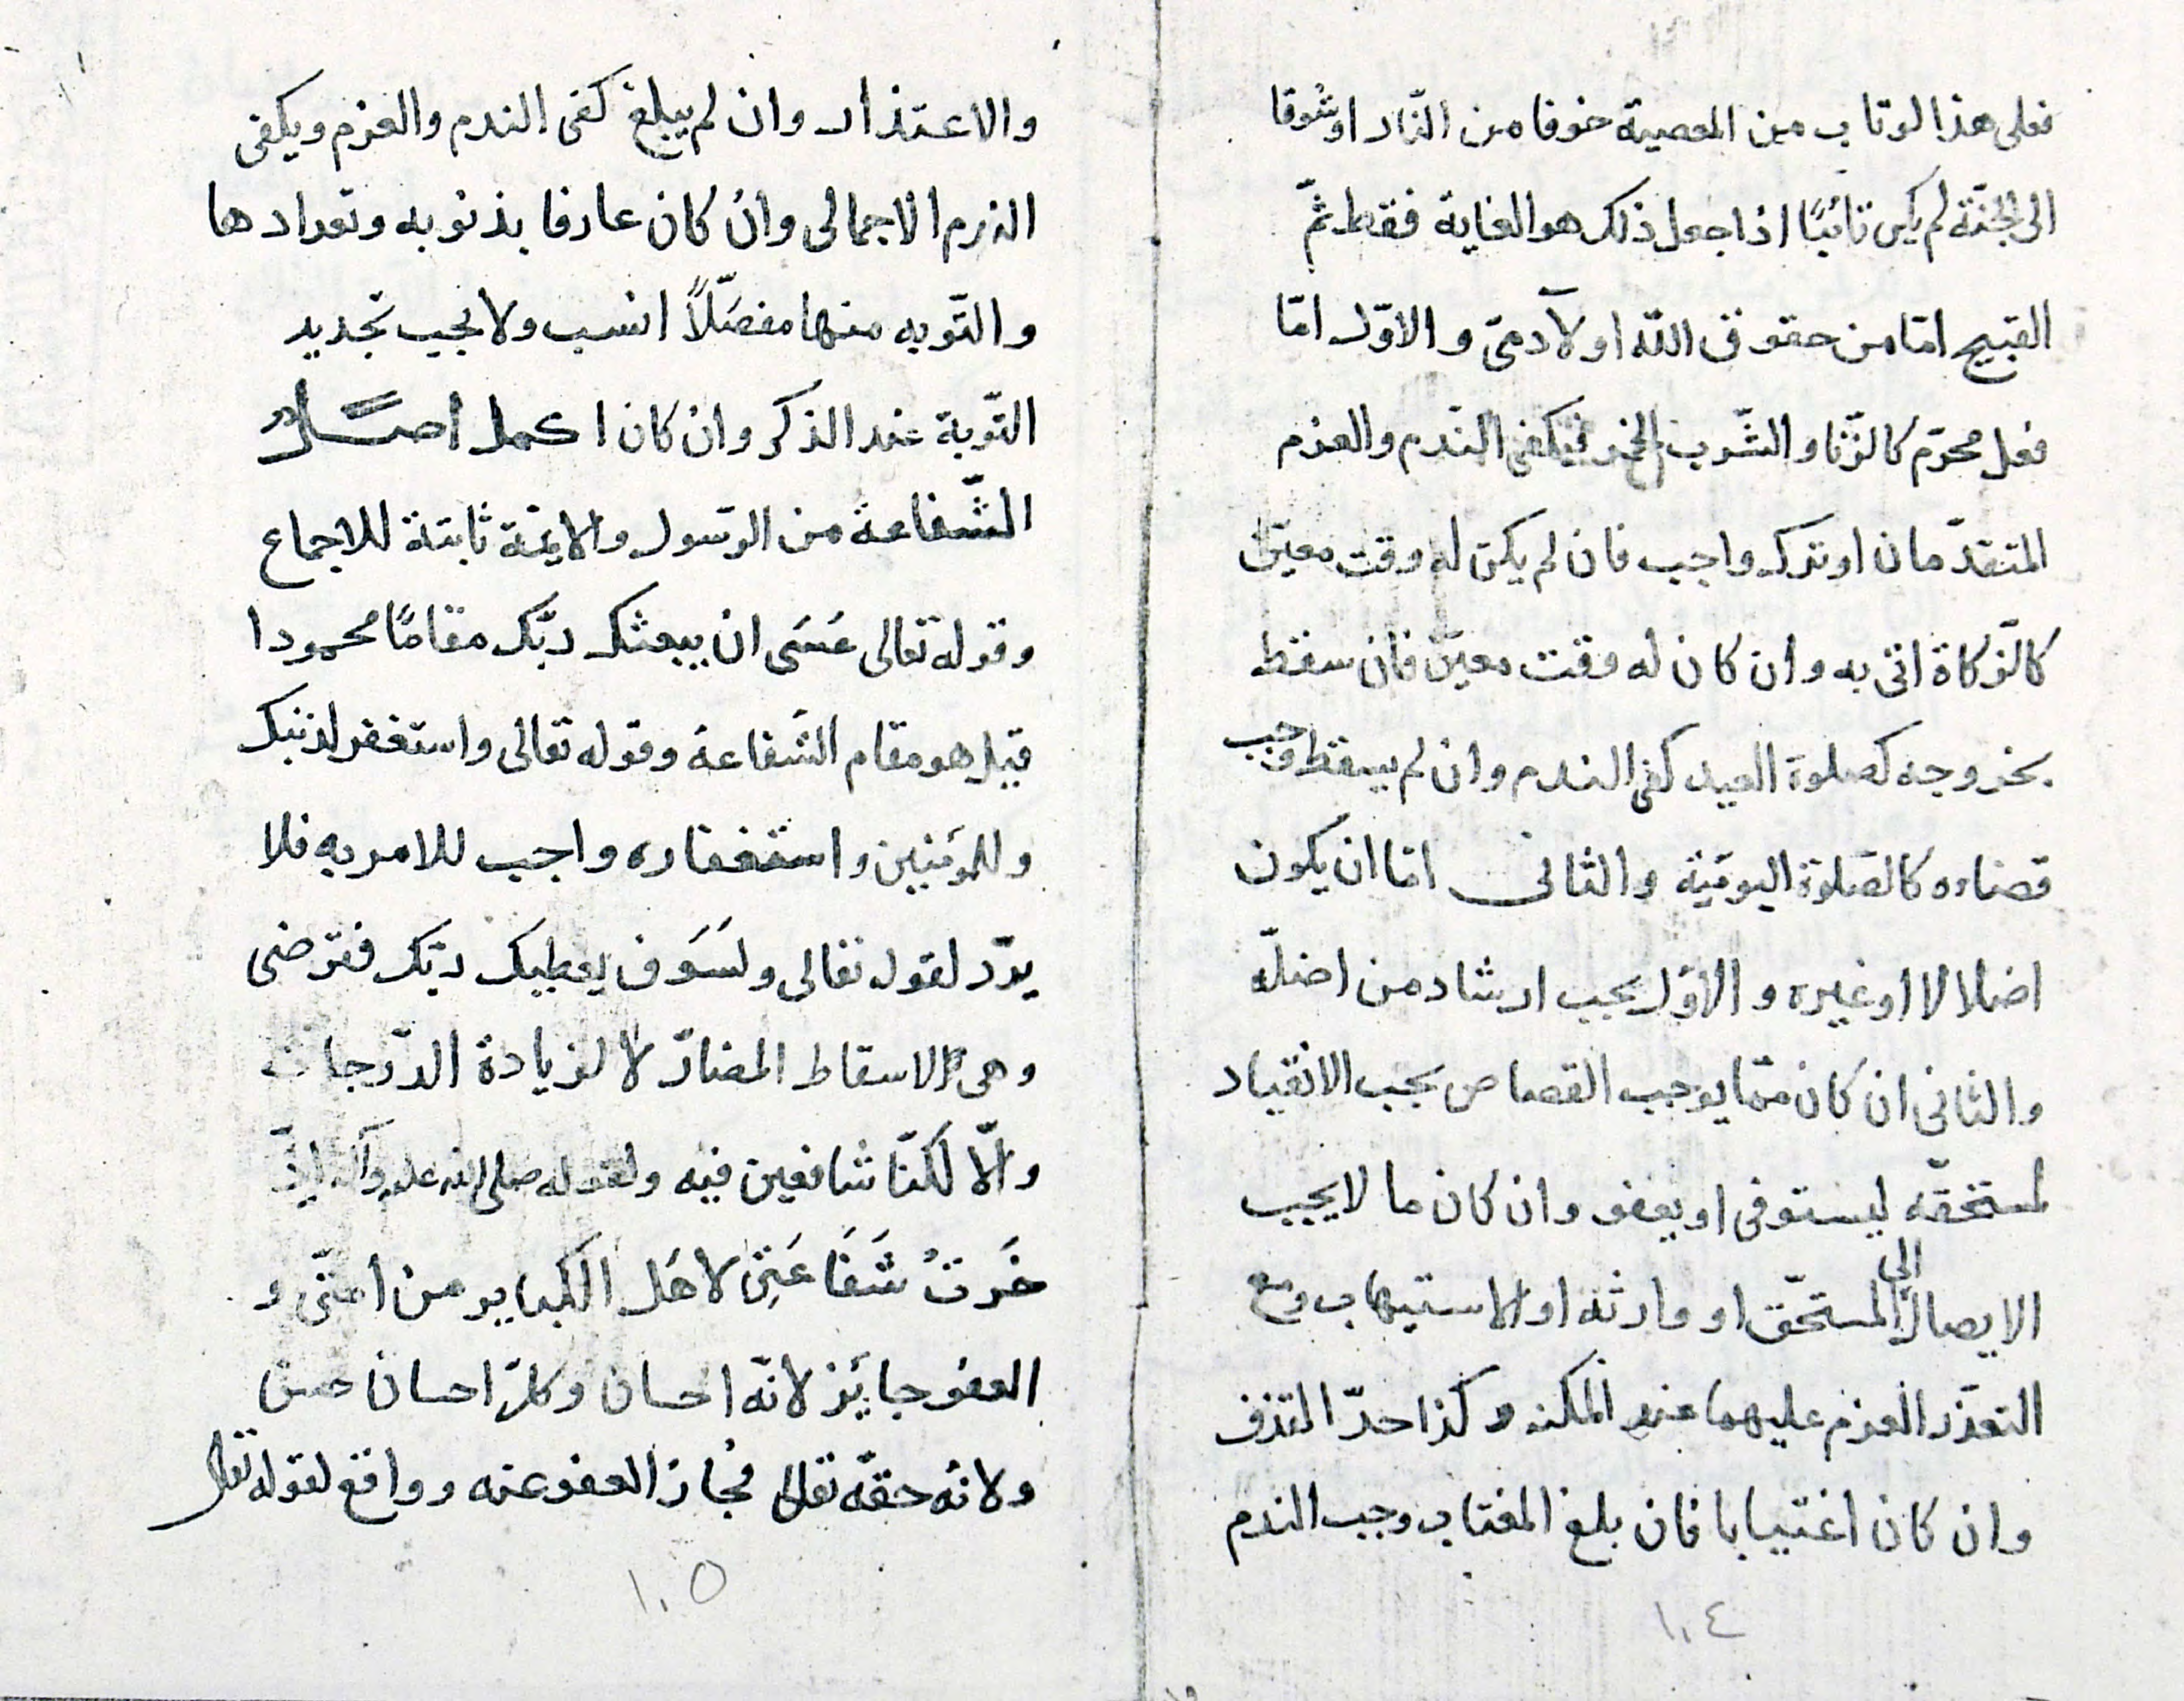 فعلى هذا لو تاب من المعصية خوفا من النّار او شوقا
الى الجنّة لم يكن تائبًا اذا جعل ذلك هو الغاية فقط ثمّ
القبيح امّا من حقوق اللّه او لآدمىّ و الاوّل امّا
فعل محرّم كالزّنا و الشّرب الخمر فيكفى النّدم والعزم
المتقدّمان او ترك واجب فان لم يكن له وقت معيّن
كالزّكاة اتى به و ان كان له وقت معيّن فان سقط
بخروجه كصلوة العيد كفى الندم وان لم يسقط وجب
قضاءه كالصّلوة اليوميّة والثانى امّا ان يكون
اضلالا او غيره و الاوّل يجب ارشاد من اضلّه
و الثانى ان كان ممّا يوجب القصاص يجب الانقياد
لمستحقّه ليستوفى او يعفو وان كان ما لا يجب
الايصال الى المستحّق او وارثه او الاستيهاب ومع
التعذّر العزم عليهما عند المكنه وكذا حدّ القذف
وان كان اغتيابا فان بلغ المغتاب وجب الندم
١٠٤
والاعتذار وان لم يبلغ كفى الندم والعزم ويكفى
الندم الاجمالى وان كان عارفا بذنوبه وتعدادها
و التّوبه منها مفصّلاً انسب ولا يجب تجديد
التّوبة عند الذكر وان كان اكمل اصلٌ
الشّفاعة من الرّسول والايمّة ثابتة للاجماع
وقوله تعالى عَسَى ان يبعثك ربّك مقامًا محمودا
قيل هو مقام الشّفاعة وقوله تعالى واستغفر لذنبك
و للمؤمنين و استغفاره واجب للامر به فلا
يردّ لقوله تعالى ولسَوَف يعطيك ربّك فترضى
و هى لاسقاط المضارّ لا لزيادة الدّرجات
والّا لكنّا شافعين فيه ولقوله صلى الله عليه وآله
خَرتُ شَفَاعَتِى لاهَل الكباير من امتّى و
العفو جايَز لانّه احسان وكلّ احسان حسن
ولانّه حقّه تعالى فجاز العفو عنه وواقع لقوله تعالى
١٠٥